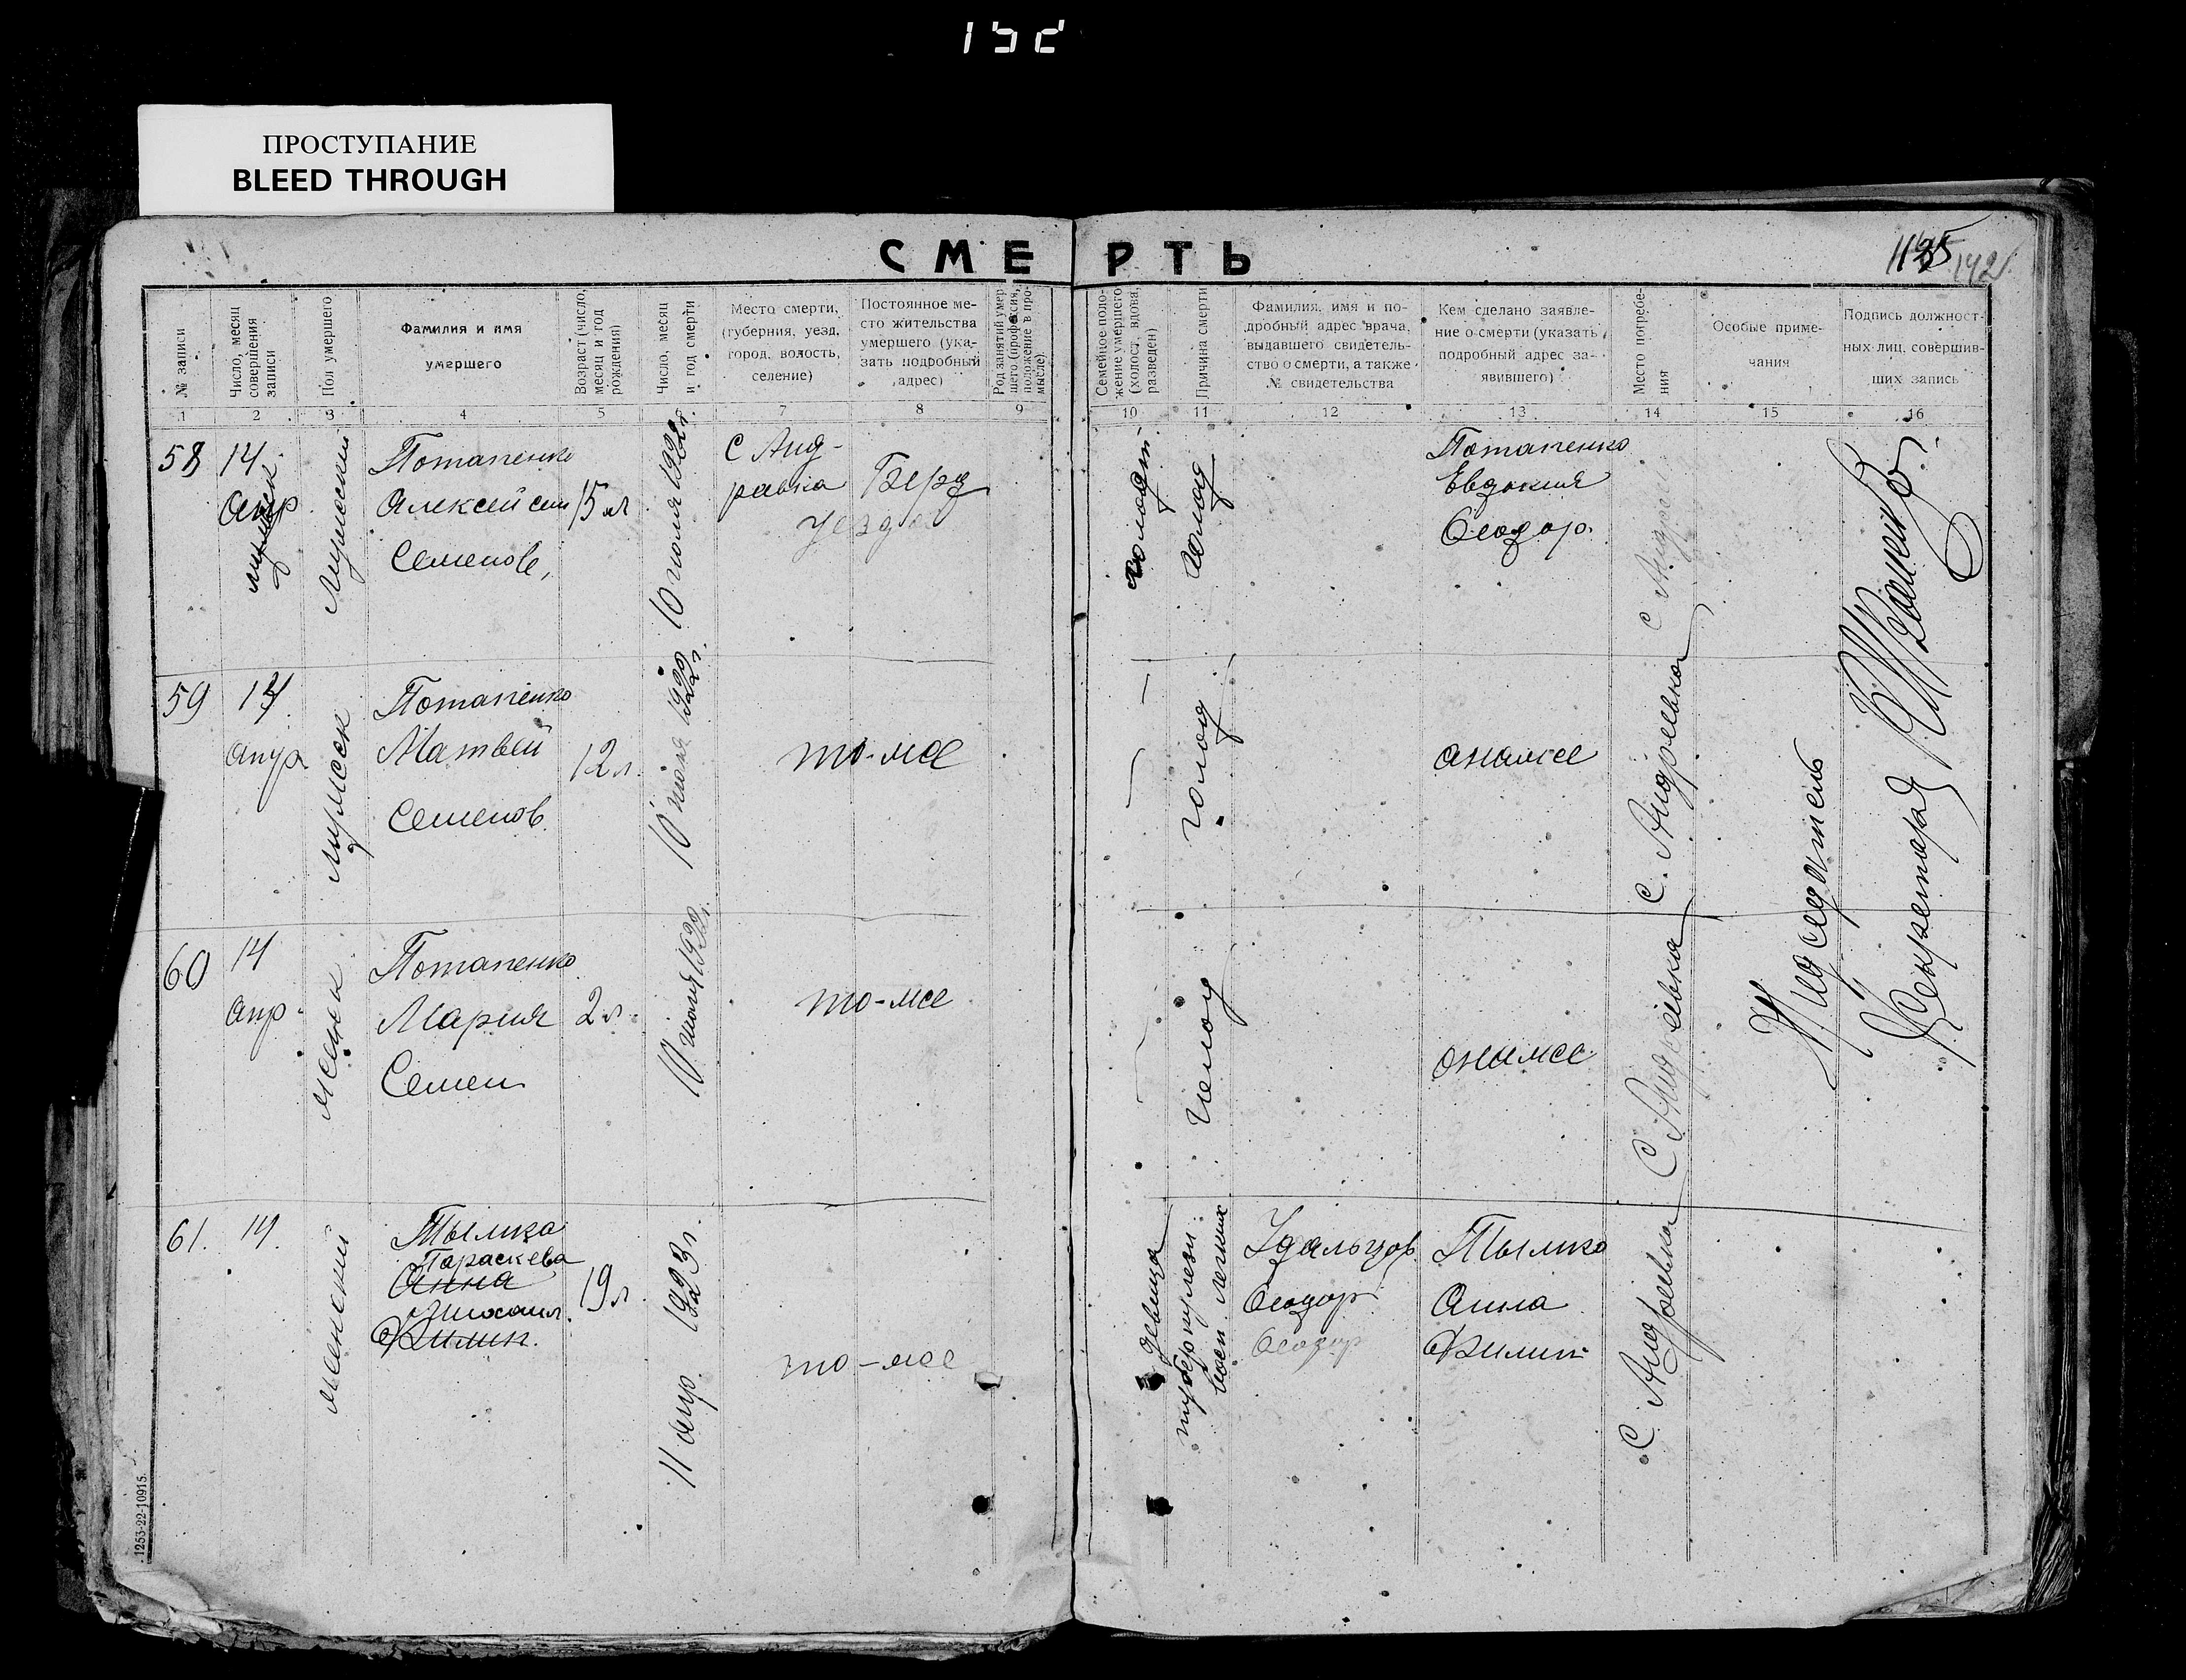 152
ПРОСТУПАНИЕ
BLEED THROUGH
СМЕРТЬ
135
142
№ записи
Число, месяц
совершения
записи
Пол умершего
Фамилия и имя
умершего
Возраст (число,
месяц и год
рождения)
Число, месяц
и год смерти
Место смерти,
(губерния, уезд,
город, волость,
селение)
Постоянное ме-
сто жительства
умершего (ука-
зать подробный
адрес)
Род занятий умер
шего (профессия,
положение в про-
мысле)
Семейное поло-
жение умершего
(холост, вдова,
разведен)
Причина смерти
Фамилия, имя и по-
дробный адрес врача,
выдавшего свидетель-
ство о смерти, а также
№ свидетельства
Кем сделано заявле-
ние о смерти (указать
подробный адрес за-
явившего)
Место погребе-
ния
Особые приме-
чания
Подпись должност-
ных лиц, совершив-
ших запись
1 2 3 4 5 7 8 9 10 11 12 13 14 15 16
58
14
Апр
Мужской
Потапенко
Алексей сем
Семенов,
15 л
10 июля 1922 г.
С Анд-
равка
Берд
уезда
холост
голод
Потапенко
Евдокия
Феодор.
С Андре
59
14
апр
мужск
Потапенко
Матвей
Семенов
12 л.
10 июля 1922 г.
то-же
голод
она же
С. Андреевка
60
14
апр.
женск
Потапенко
Мария
Семен
2 л.
10 июля 1922 г.
то-же
голод
она же
С Андреевка
61.
14.
женский
Тылика
Параскева
Анна
Михаил.
Филип.
19 л
11 апр. 1923 г.
то-же
девица
туберкулезн.
восп. легких
Удальцов
Феодор
Феодор
Тылико
Анна
Филип
С. Андреевка
Председатель
Секретарь
1253-22-10915.